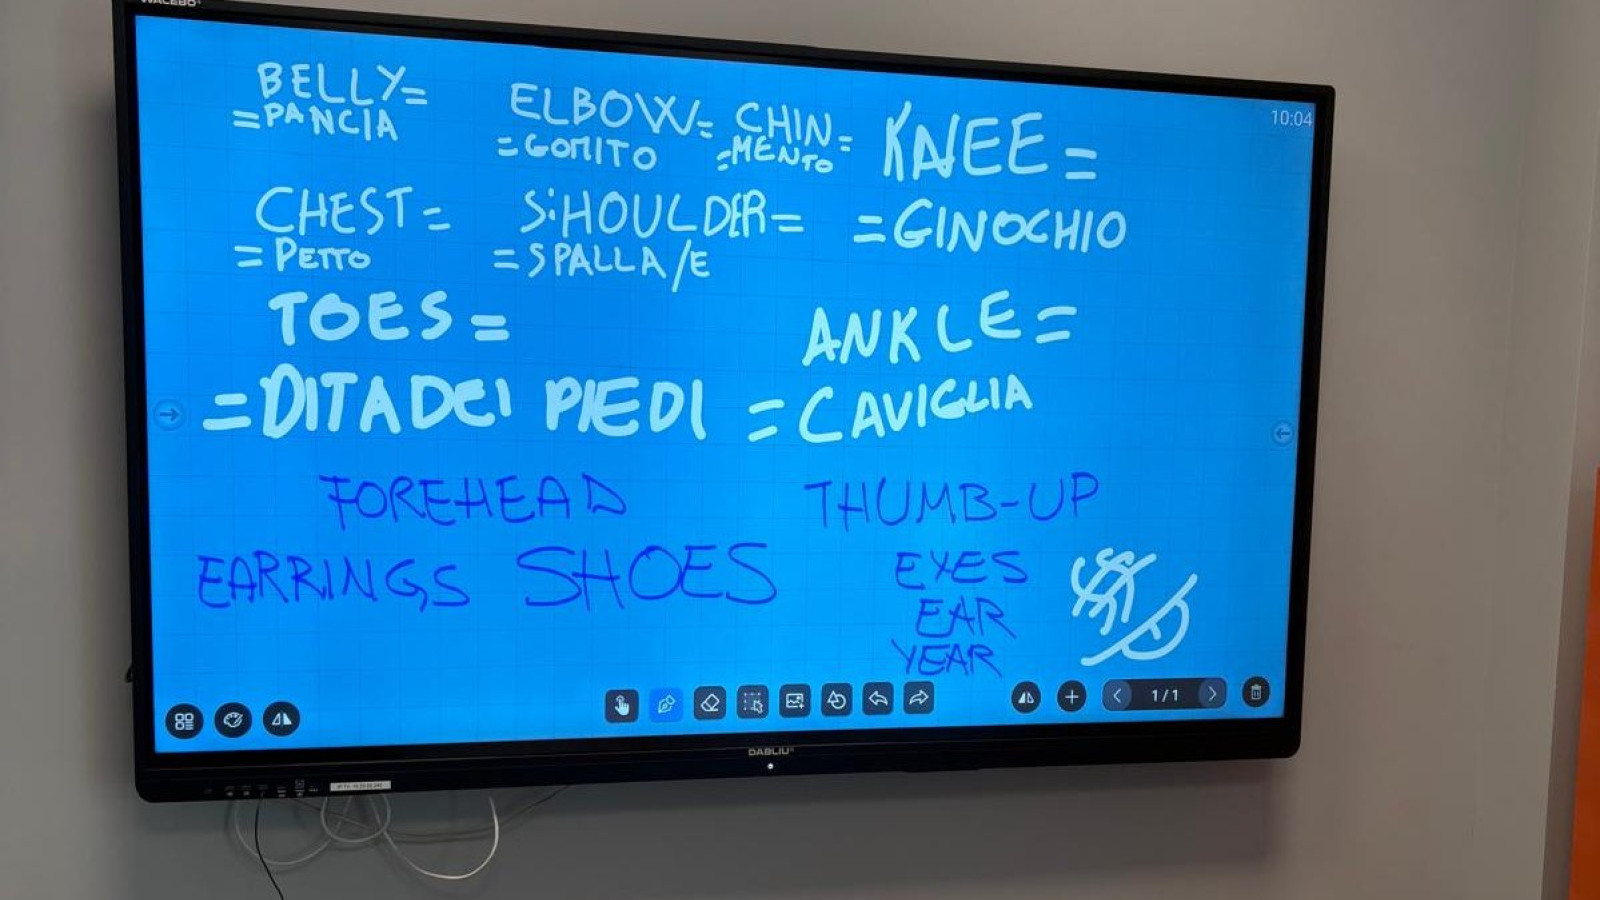 WACEBO
BELLY= ELBOW= CHIN= KNEE=
=PANCIA =GOMITO =MENTO
10:04
CHEST= SHOULDER= =GINOCHIO
=PETTO =SPALLA/E
TOES= ANKLE=
=DITA DEI PIEDI =CAVIGLIA
FOREHEAD THUMB-UP
EARRINGS SHOES EYES
EAR
YEAR
1/1
DABLIU